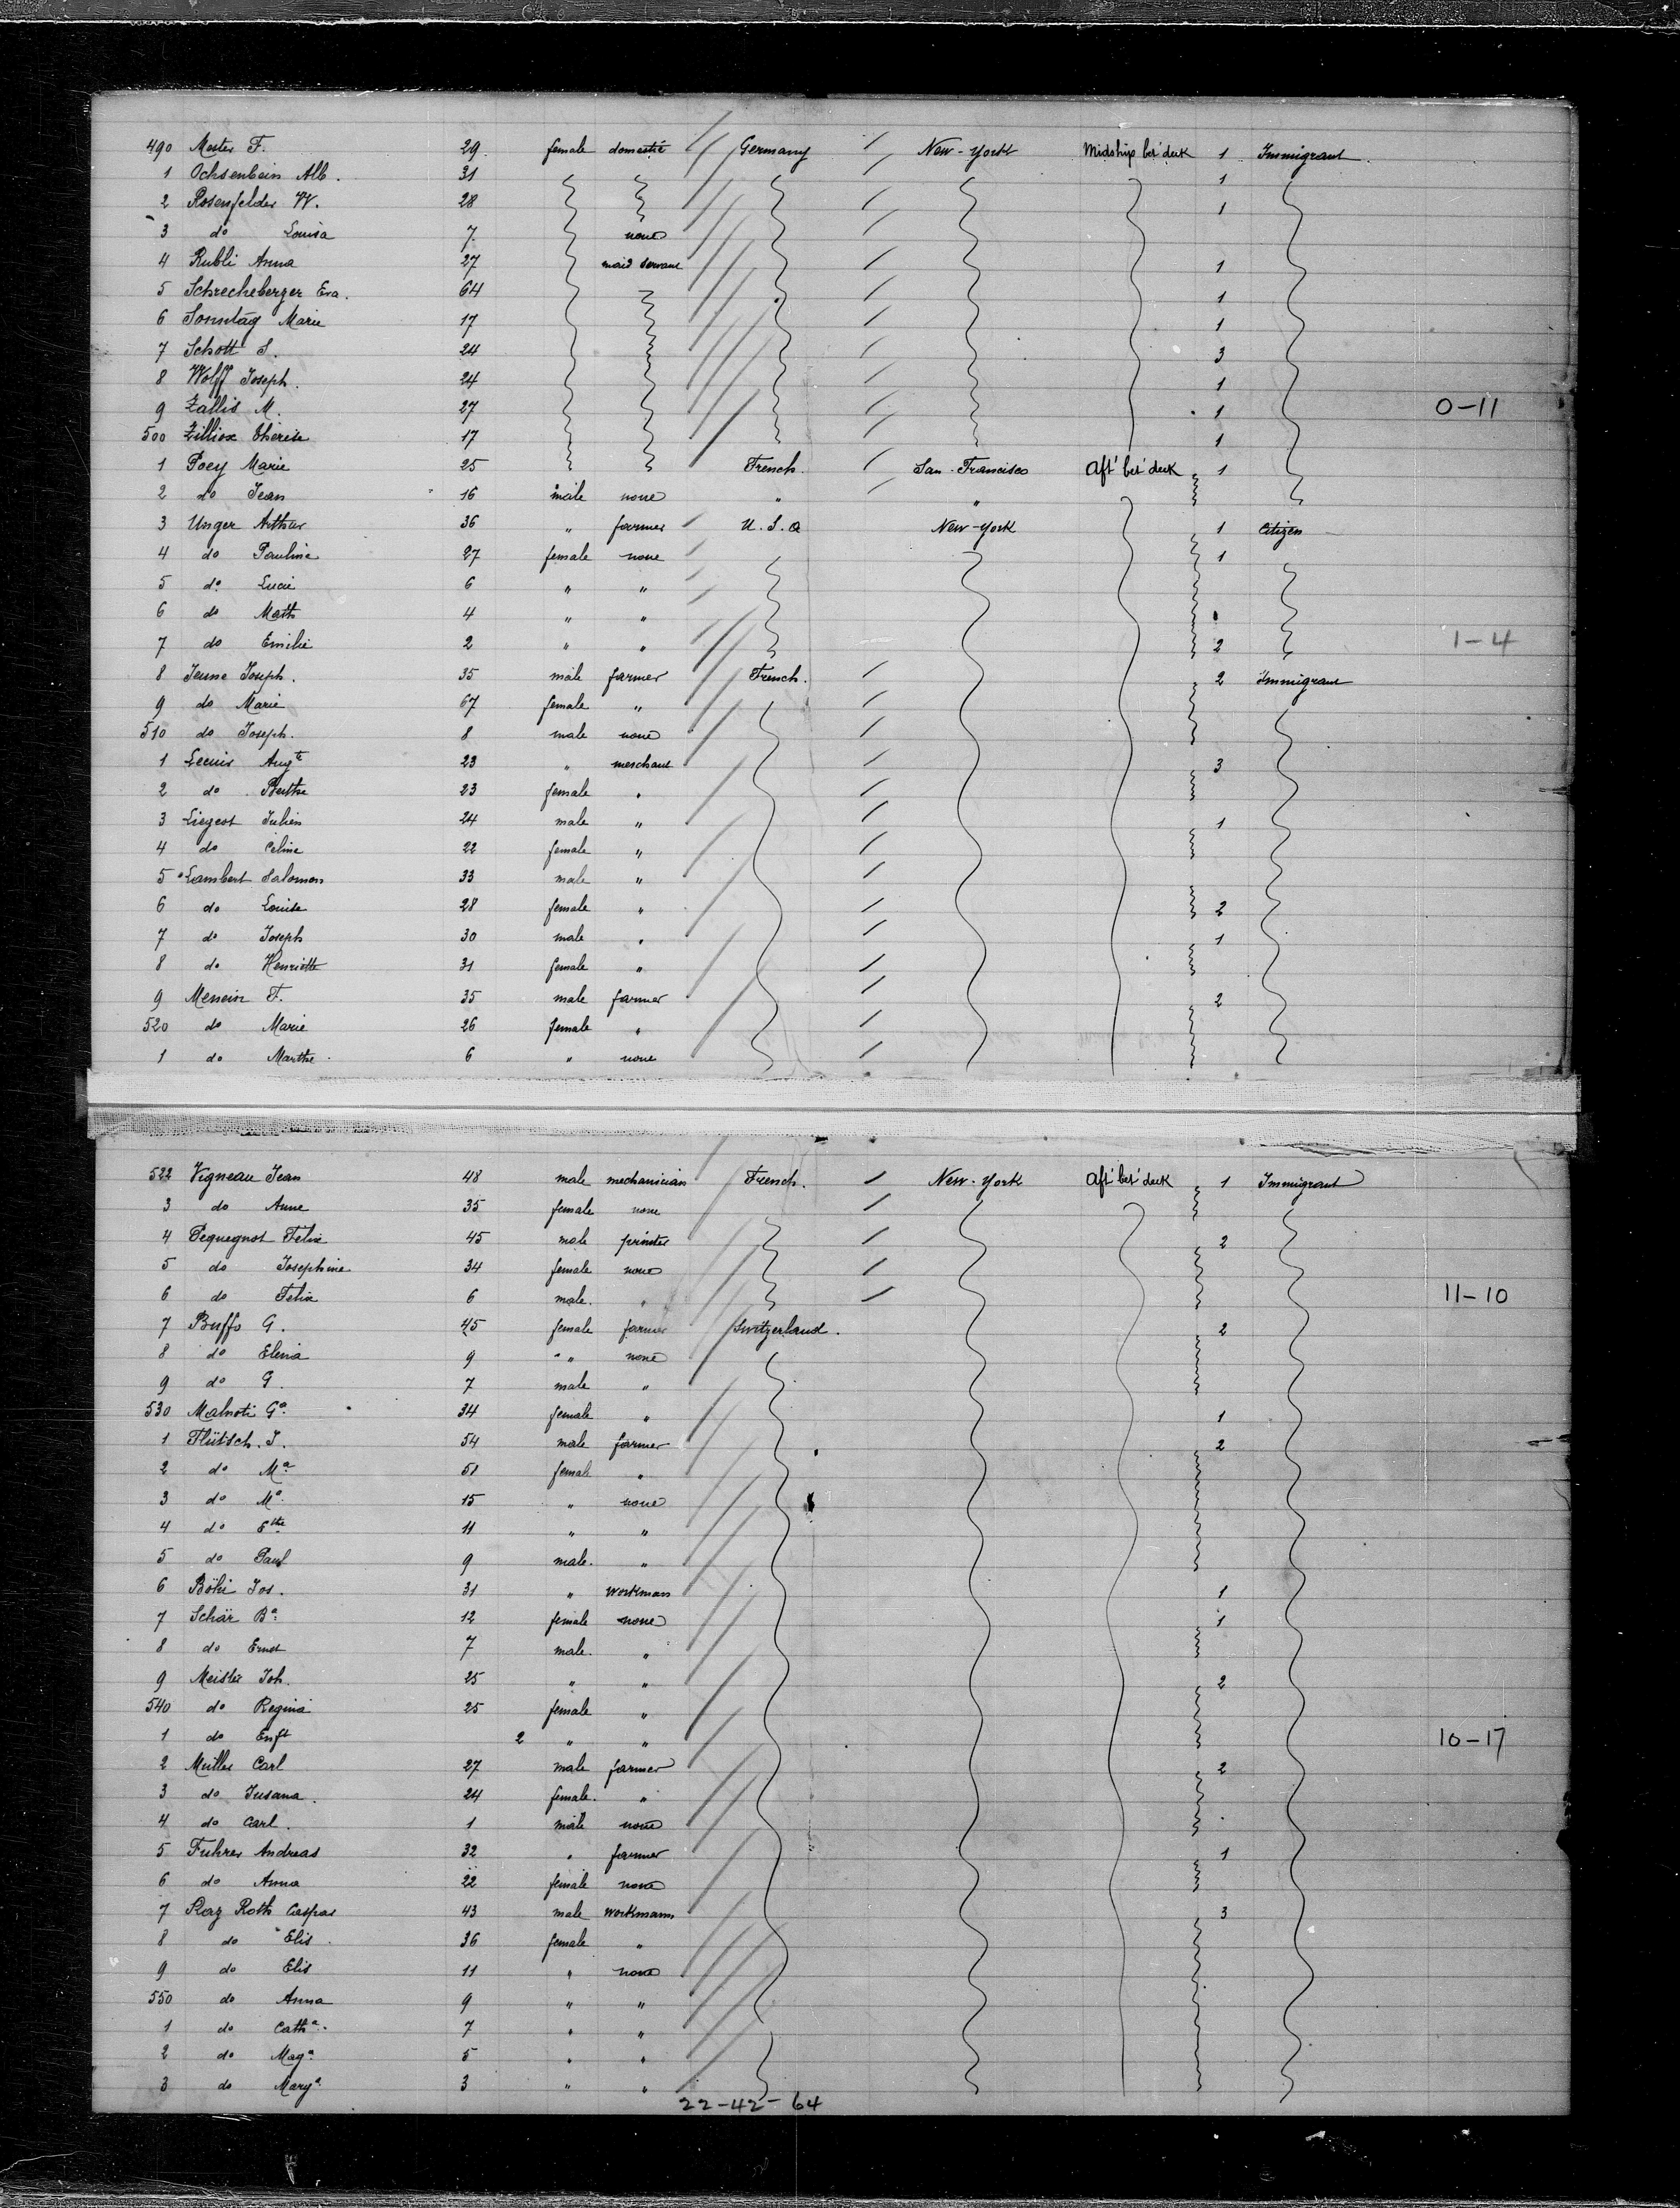 490 Mester F. 29 female domestic Germany New-York Midship bet' deck 1 Immigrant
1 Ochsenbein Alb. 31 1
2 Rosenfelder W. 28 1
3 do Louisa 7 none
4 Rubli Anna 27 maid servant 1
5 Schrecheberger Eva. 64 1
6 Sonntag Marie 17 1
7 Schott S. 24 3
8 Wolff Joseph. 24 1
9 Zallis M. 27 1 0-11
500 Zilliox Therese 17 1
1 Poey Marie 25 French. San-Francisco Aft' bet' deck 1
2 do Jean 16 male none " "
3 Unger Arthur 36 " farmer U.S.a New-York 1 Citizen
4 do Pauline 27 female none 1
5 do Lucie 6 " "
6 do Math 4 " "
7 do Emilie 2 " " 2 1-4
8 Jeune Joseph. 35 male farmer French. 2 Immigrant
9 do Marie 67 female "
510 do Joseph. 8 male none
1 Augte 23 " merchant 3
2 do Berthe 23 female "
3 Liegeot Julien 24 male " 1
4 do Celine 22 female "
5 Lambert Salomon 33 male "
6 do Louise 28 female " 2
7 do Joseph 30 male " 1
8 do Henriette 31 female "
9 F. 35 male farmer 2
520 do Marie 26 female "
1 do Marthe 6 " none
522 Vigneau Jean 48 male mechanician French. New-York Aft' bet' deck 1 Immigrant
3 do Anne 35 female none
4 Pequegnot Felix 45 male printer 2
5 do Josephine 34 female none
6 do Felix 6 male. " 11-10
7 Buffo G. 45 female farmer Switzerland. 2
8 do Elena 9 " none
9 do G. 7 male "
530 Malnoti Ga. 34 female " 1
1 Flütsch. J. 54 male farmer 2
2 do Ma. 51 female "
3 do Ma. 15 " none
4 do 11 " "
5 do Paul 9 male. "
6 Böhi Jos. 31 " workman 1
7 Schär Ba. 12 female none 1
8 do Ernst 7 male. "
9 Meister Joh. 25 " " 2
540 do Regina 25 female "
1 do 2 " " 10-17
2 Muller Carl 27 male farmer 2
3 do Susana. 24 female. "
4 do Carl. 1 male none
5 Fuhrer Andreas 32 " farmer 1
6 do Anna 22 female none
7 Roth Caspar 43 male workmann 3
8 do Elis. 36 female "
9 do Elis 11 " none
550 do Anna 9 " "
1 do Catha. 7 " "
2 do Maga. 5 " "
3 do Marya. 3 " "
22-42-64